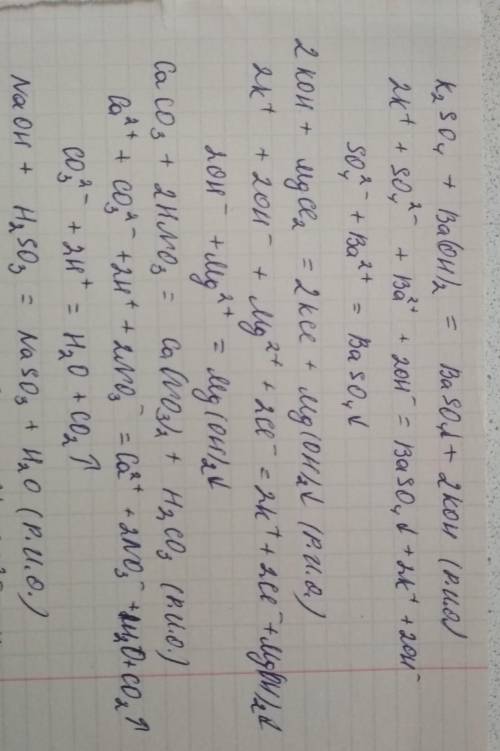 K₂SO₄ + Ba(OH)₂ = BaSO₄↓ + 2KOH (Р.И.О)
2K⁺ + SO₄²⁻ + Ba²⁺ + 2OH⁻ = BaSO₄↓ + 2K⁺ + 2OH⁻
SO₄²⁻ + Ba²⁺ = BaSO₄↓
2KOH + MgCl₂ = 2KCl + Mg(OH)₂↓ (Р.И.О.)
2K⁺ + 2OH⁻ + Mg²⁺ + 2Cl⁻ = 2K⁺ + 2Cl⁻ + Mg(OH)₂↓
2OH⁻ + Mg²⁺ = Mg(OH)₂↓
CaCO₃ + 2HNO₃ = Ca(NO₃)₂ + H₂CO₃ (Р.И.О)
Ca²⁺ + CO₃²⁻ + 2H⁺ + 2NO₃⁻ = Ca²⁺ + 2NO₃⁻ + H₂O + CO₂↑
CO₃²⁻ + 2H⁺ = H₂O + CO₂↑
NaOH + H₂SO₃ = NaSO₃ + H₂O (Р.И.О.)